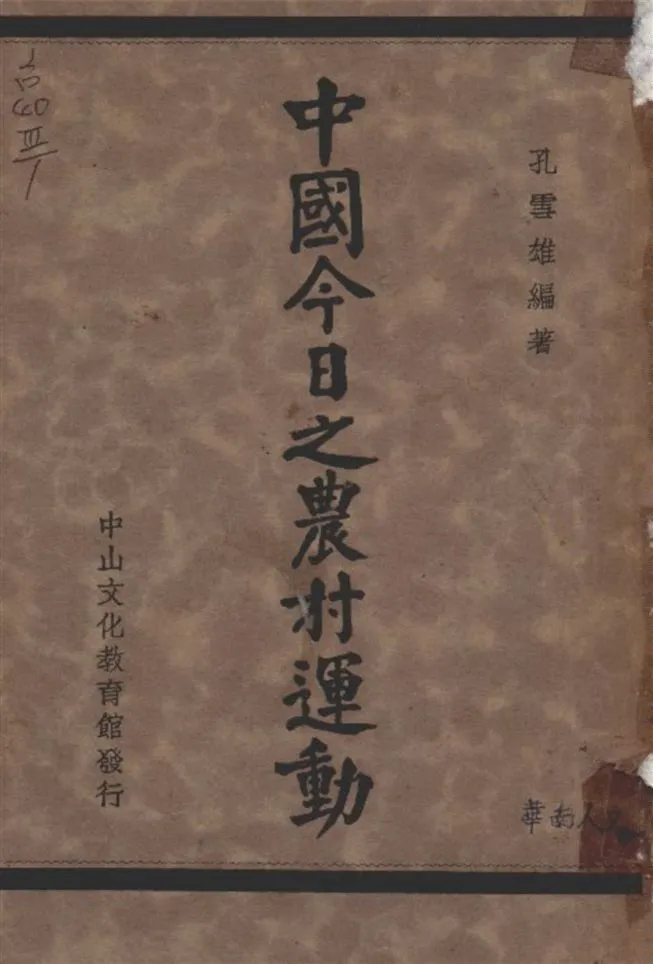 孔雪雄編著
中國今日之農村運動
中山文化教育館發行
華南人